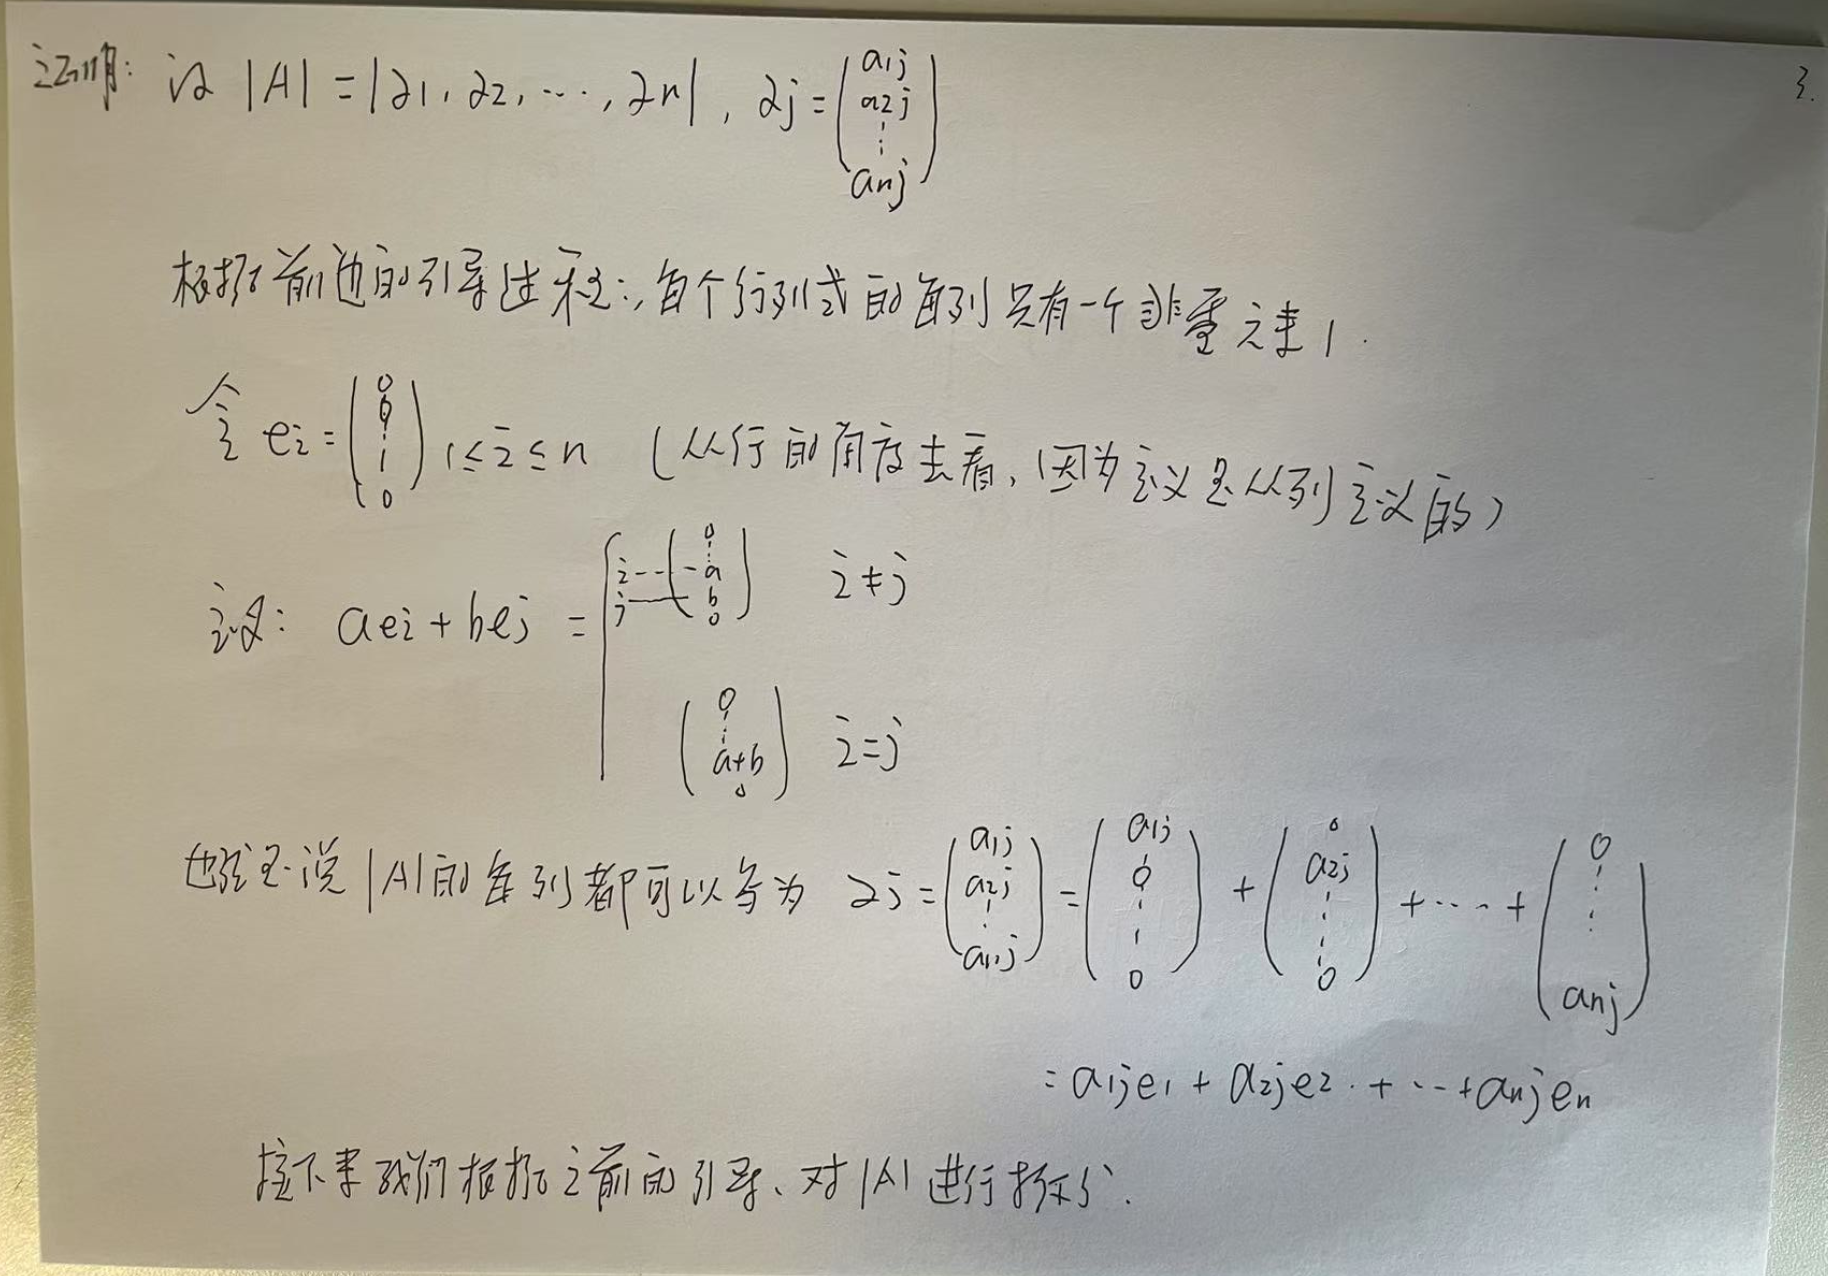 证明: 设 |A| = |α1, α2, ⋯, αn|, αj = (a1j a2j ⋮ anj)
3.
根据前边的引导过程:, 每个行列式的每列只有一个非零元素1.
令 ei = (0 0 ⋮ 1 0) 1≤i≤n (从行的角度去看, 因为定义是从列定义的)
设: aei + bej = { i--(0 ⋮ a b 0) j— i≠j
(0 ⋮ a+b 0) i=j
也就是说 |A| 的每列都可以写为 αj = (a1j a2j ⋮ anj) = (a1j 0 ⋮ 0) + (0 a2j ⋮ 0) + ⋯ + (0 ⋮ anj)
= a1je1 + a2je2 + ⋯ + anjen
接下来我们根据之前的引导、对 |A| 进行拆分.